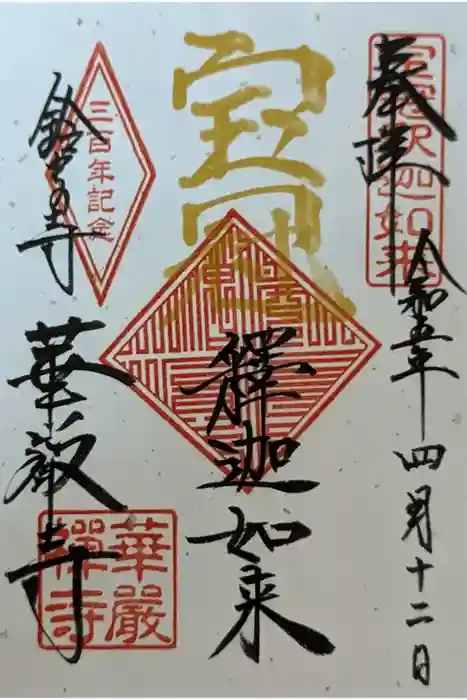 奉拝
宝冠釈迦如来
令和五年四月十二日
宝冠
釋迦如来
三百年記念
鈴虫寺
華厳寺
華嚴
禪寺